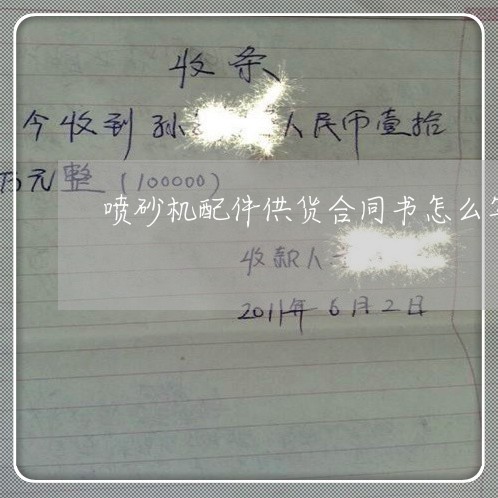 收条
今收到孙 人民币壹拾
万元整(100000)
喷砂机配件供货合同书怎么写
收款人
2011年6月2日